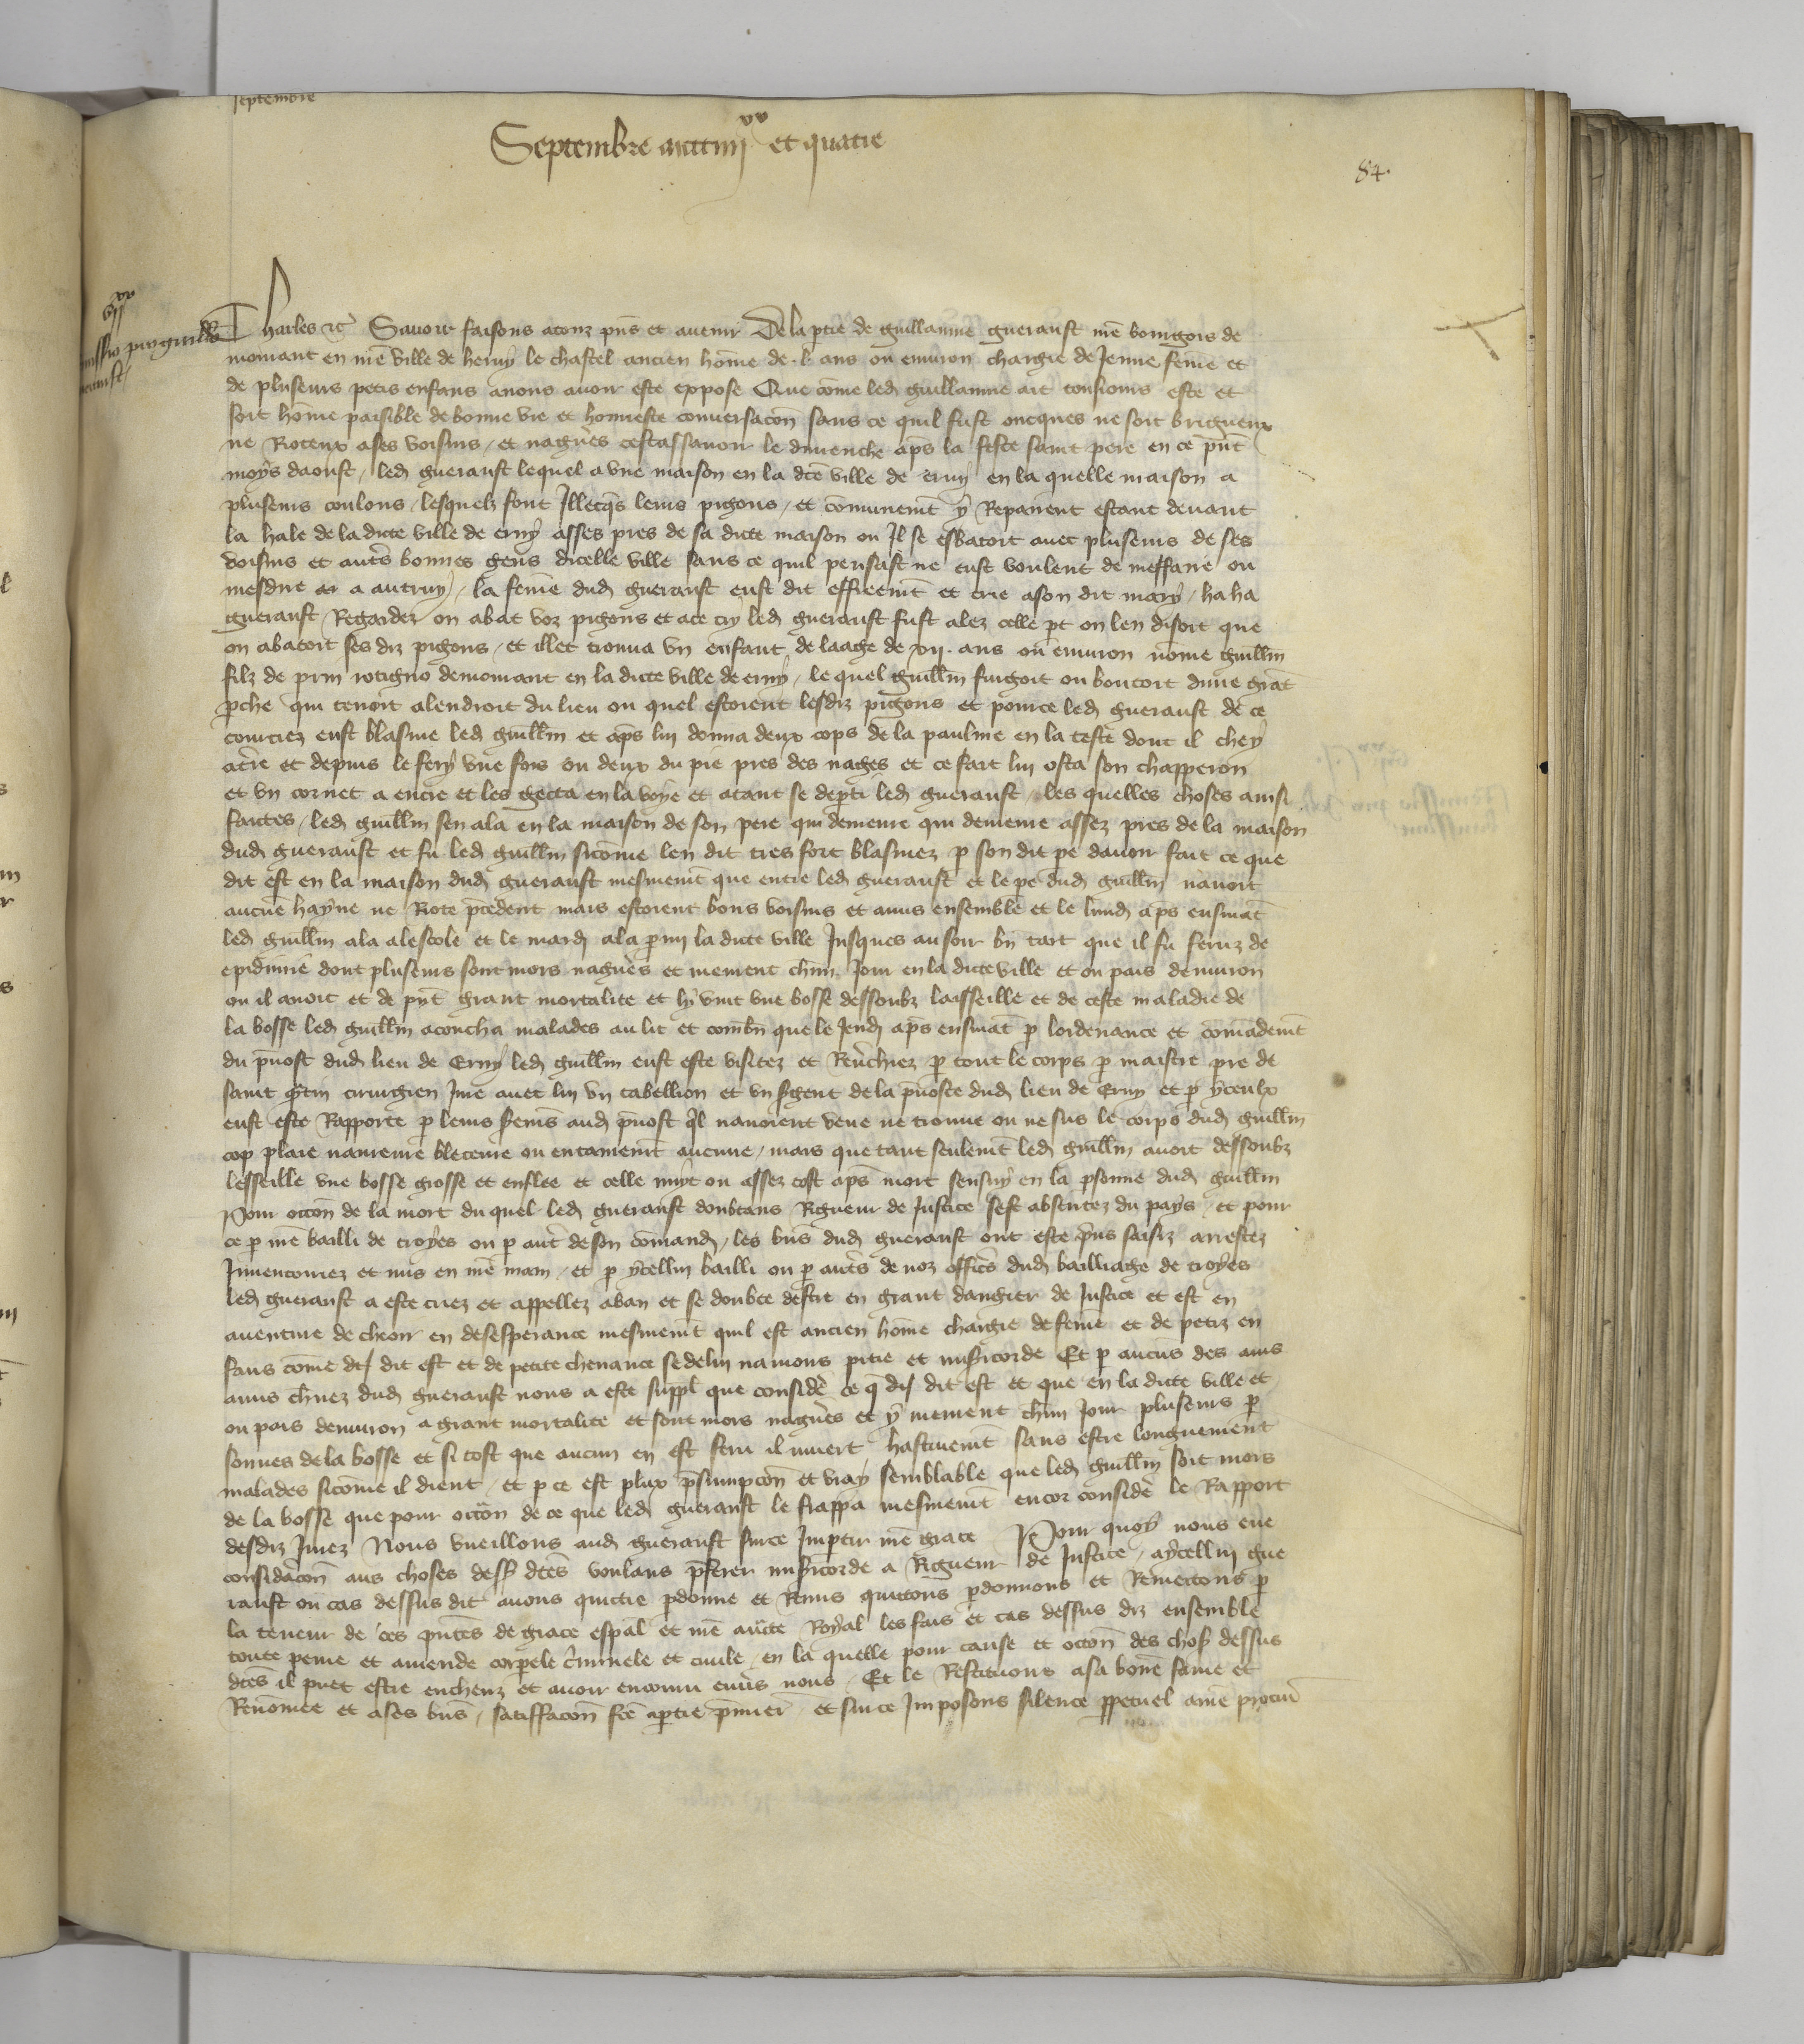 septembre
Septembre mil CCC IIII xx et quatre
84.
vii xx
remissio pro guillo
gueraust
Charles etc Savoir faisons a touz pns et avenir De la ptie de guillaume gueraust nre bourgois de
mourant en nre ville de hervy le chastel ancien home de .l. ans ou environ chargie de Jeune feme et
de pluseurs petis enfans avons avoir este expose Que come led guillaume ait tousiours este et
soit home paisible de bonne vie et honneste conversacon sans ce quil fust oncques ne soit brigueux
ne Roteux a ses voisins / et nagueres cestassavoir le dimenche aps la feste saint pere en ce pnt
moys daoust / led gueraust lequel a une maison en la dce ville de ervy en la quelle maison a
pluseurs coulons / lesquelx font Illecqs leurs pigons / et comunemt y Repairent estant devant
la hale de la dicte ville de ervy asses pres de sa dicte maison ou Il se esbatoit avec pluseurs de ses
voisins et autres bonnes gens dicelle ville sans ce quil pensast ne eust voulente de meffaire ou
mesdire a autruy / la feme dud gueraust eust dit effreemt et crie a son dit mary / ha ha
gueraust / Regardez on abat voz pigons et a ce cry led gueraust fust alez celle pt ou len disoit que
on abatoit ses diz pigons / et illec trouva un enfant de laage de xii. ans ou environ nome guillm
filz de prin demourant en la dicte ville de ervy / le quel guillm furgoit ou boutoit dune grat
pche qui tenoit a lendroit du lieu ou quel estoient lesdiz pigons et pour ce led gueraust de ce
courciez eust blasme led guillm et aps lui donna deux cops de la paulme en la teste dont il chey
a tre et depuis le fery une fois ou deux du pie pres des nages et ce fait lui osta son chapperon
et un cornet a encre et les gecta en la voye et atant se depti led gueraust / les quelles choses ainsi
faictes / led guillm sen ala en la maison de son pere qui demeure qui demeure assez pres de la maison
dud gueraust et fu led guillm sicome len dit tres fort blasmez p son dit pe davoir fait ce que
dit est en la maison dud gueraust mesmemt que entre led gueraust et le pe dud guillm navoit
aucune hayne ne Rote pcedent mais estoient bons voisins et amis ensemble et le lund aps ensuiat
led guillm ala a lescole et le mard ala pmi la dicte ville Jusques au soir bn tart que il fu feruz de
epidimie dont pluseurs sont mors nagueres et meurent chun Jour en la dicte ville et ou pais denviron
ou il avoit et de pnt grant mortalite et ly vint une bosse dessoubz laisseille et de ceste maladie de
la bosse led guillm acoucha malades au lit et combn que le Jeud aps ensuiat p lordenance et comademt
du pvost dud lieu de Ervy led guillm eust este visitez et Revchiez p tout le corps p maistre pre de
saint cirurgien Jure avec lui un tabellion et un sgent de la pvoste dud lieu de Ervy et p yceulx
eust este Rapporte p leurs sermes aud pvost ql navoient veue ne trouve ou ne sus le corps dud guillm
cop plaie navreure bleceure ou entamemt aucune / mais que tant seulemt led guillm avoit dessoubz
lesseille une bosse grosse et enflee et celle nuyt ou assez tost aps mort sensuy en la psonne dud guillm
Pour occon de la mort du quel led gueraust doubtans Rigueur de Justice sest absentez du pays / et pour
ce p nre bailli de troyes ou p autre de son comand / les bns dud gueraust ont este pns saisiz arrestez
Inventoriez et mis en nre main / et p ycellui bailli ou p autres de noz officrs dud bailliage de troyes
led gueraust a este criez et appellez a ban et se doubte destre en grant dangier de Justice et est en
aventure de cheoir en desesperance mesmemt quil est ancien home chargie de feme et de petiz en
fans come dit est et de petite chevance se de lui navions pitie et misicorde Et p aucuns des
amis chnez dud gueraust nous a este suppl que considere ce q dit est et que en la dicte ville et
ou pais denviron a grant mortalite et sont mors nagueres et y meurent chun Jour pluseurs p
sonnes de la bosse et si tost que aucun en est feru il muert hastivemt sans estre longuement
malades sicome il dient / et p ce est plux psumpcon et vray semblable que led guillm soit mors
de la bosse que pour occon de ce que led gueraust le frappa mesmemt encor considere le Rapport
desdiz Jurez Nous vueillons aud gueraust sur ce Impartir nre grace Pour quoy nous eue
consideracon aus choses dess dces voulans pferer misicorde a Rigueur de Justice / a ycellui gue
raust ou cas dessus dit avons quictie pdonne et Remis quittons pdonnons et Remettons p
la teneur de ces pntes de grace espal et nre aucte Royal les fais et cas dessus diz ensemble
toute peine et amende corporele criminele et civile / en la quelle pour cause et occon des chos dessus
dces il puet estre encheuz et avoir encouru envs nous / Et le Restituons a sa bone fame et
Renomee et a ses bns / satisfacon fce a ptie pmier et sur ce Imposons silence ppetuel a nre procur